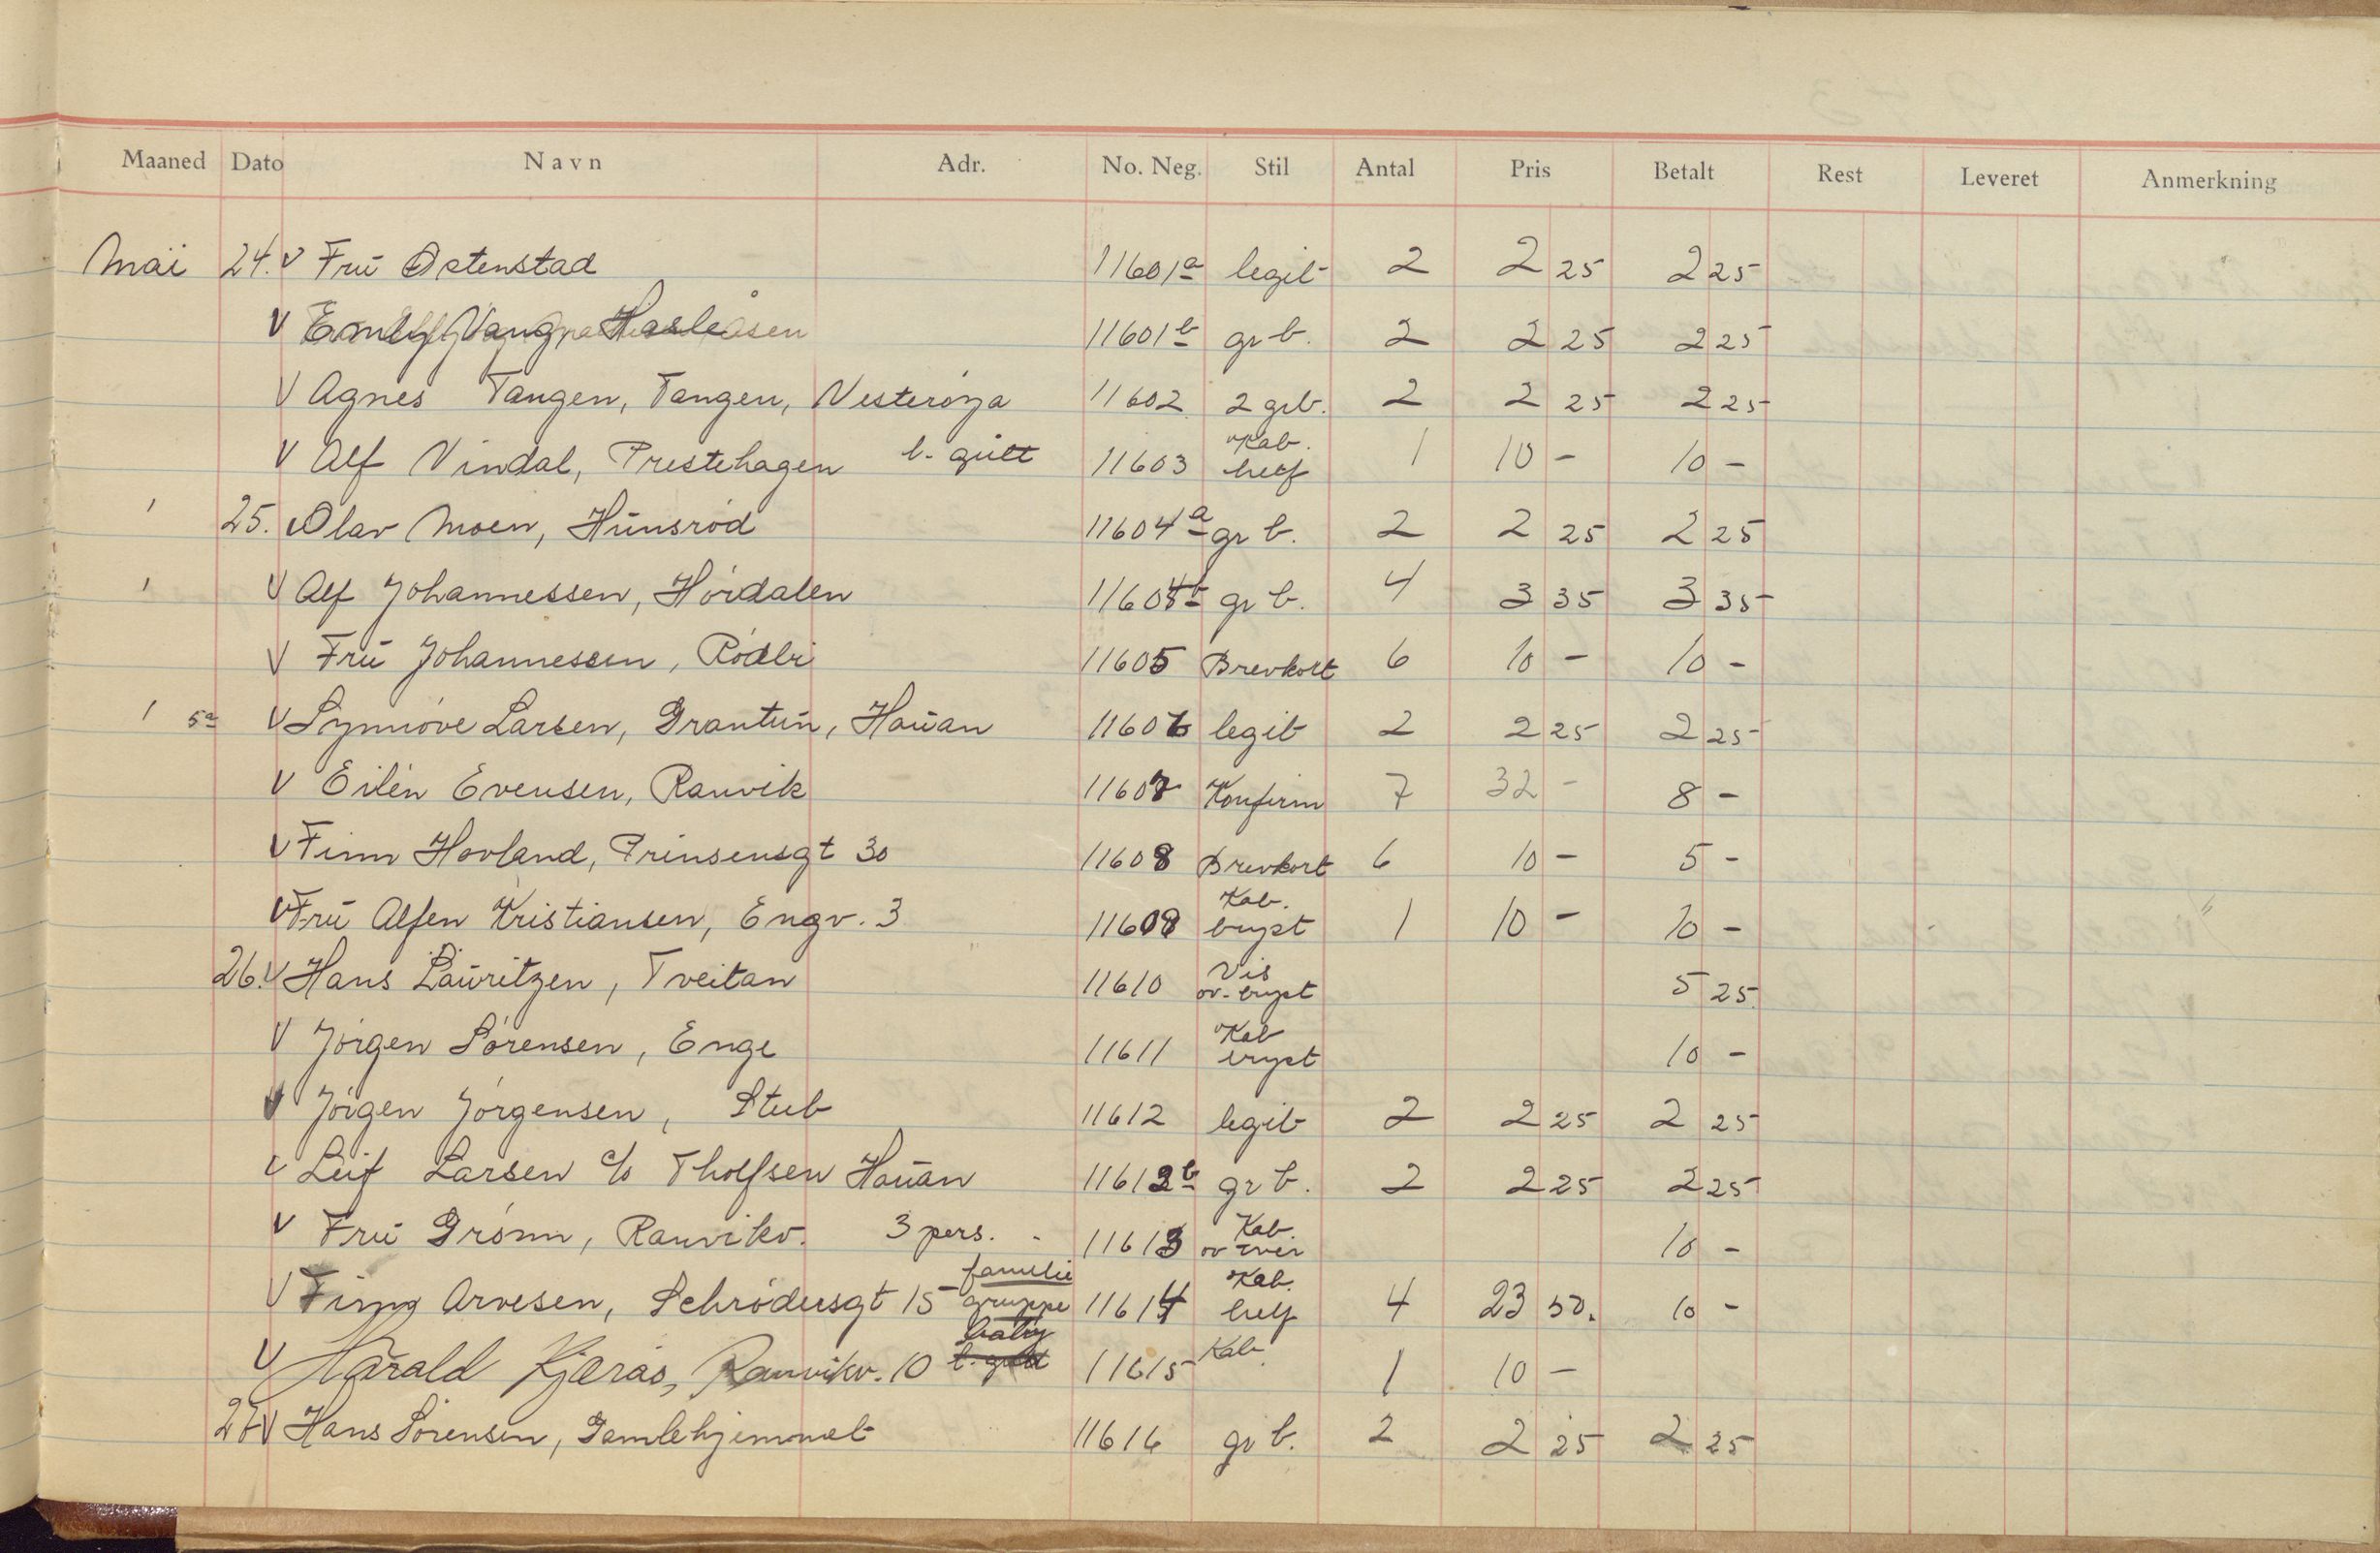 Maaned Dato Navn Adr. No. Neg. Stil Antal Pris Betalt Rest Leveret Anmerkning
Mai 24. V Frū Østenstad 11601a legit 2 2 25 2 25
V Emly Vang Hasleåsen 11601b gr b. 2 2 25 2 25
V Agnes Tangen, Tangen, Vesterøya 11602 2 grb. 2 2 25 2 25
V Alf Vindal, Prestehagen l. gūtt 11603 Kab. helf 1 10 - 10 -
25. V Olav Moen, Hūnsrød 11604a gr b. 2 2 25 2 25
V Alf Johannessen, Hørdalen 11604b gr b. 4 3 35 3 35
V Frū Johannessen, Rødbi 11605 Brevkort 6 10 - 10 -
V Synnøve Larsen, Grantūn, Haūan 11606 legit 2 2 25 2 25
V Eilén Evensen, Ranvik 11607 Konfirm 7 32 - 8 -
V Finn Hovland, Prinsensgt 30 11608 Brevkort 6 10 - 5 -
V Frū Alfen Kristiansen, Engv. 3 11609 Kab. bryst 1 10 - 10 -
26. V Hans Laūritzen, Tveitan 11610 Vis ov. bryst 5 25
V Jørgen Sørensen, Enge 11611 Kab bryst 10 -
V Jørgen Jørgensen, Stub 11612 legit 2 2 25 2 25
V Leif Larsen c/o Tholfsen Haūan 11612b gr b. 2 2 25 2 25
V Frū Grønn, Ranvikv. 3 pers. 11613 Kab. ov tver 10 -
V Finn Arvesen, Schrødersgt 15 familie gruppe 11614 Kab. helf 4 23 50. 10 -
V Harald Kjærås, Ranvikv. 10 baby 11615 Kab 1 10 -
27 V Hans Sørensen, Gamlehjemmet 11616 gr b. 2 2 25 2 25